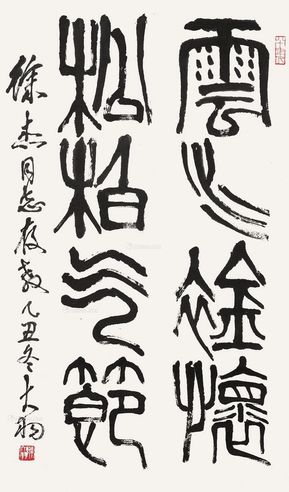 雲水襟懷
松柏氣節
徐杰同志存教乙丑冬大羽